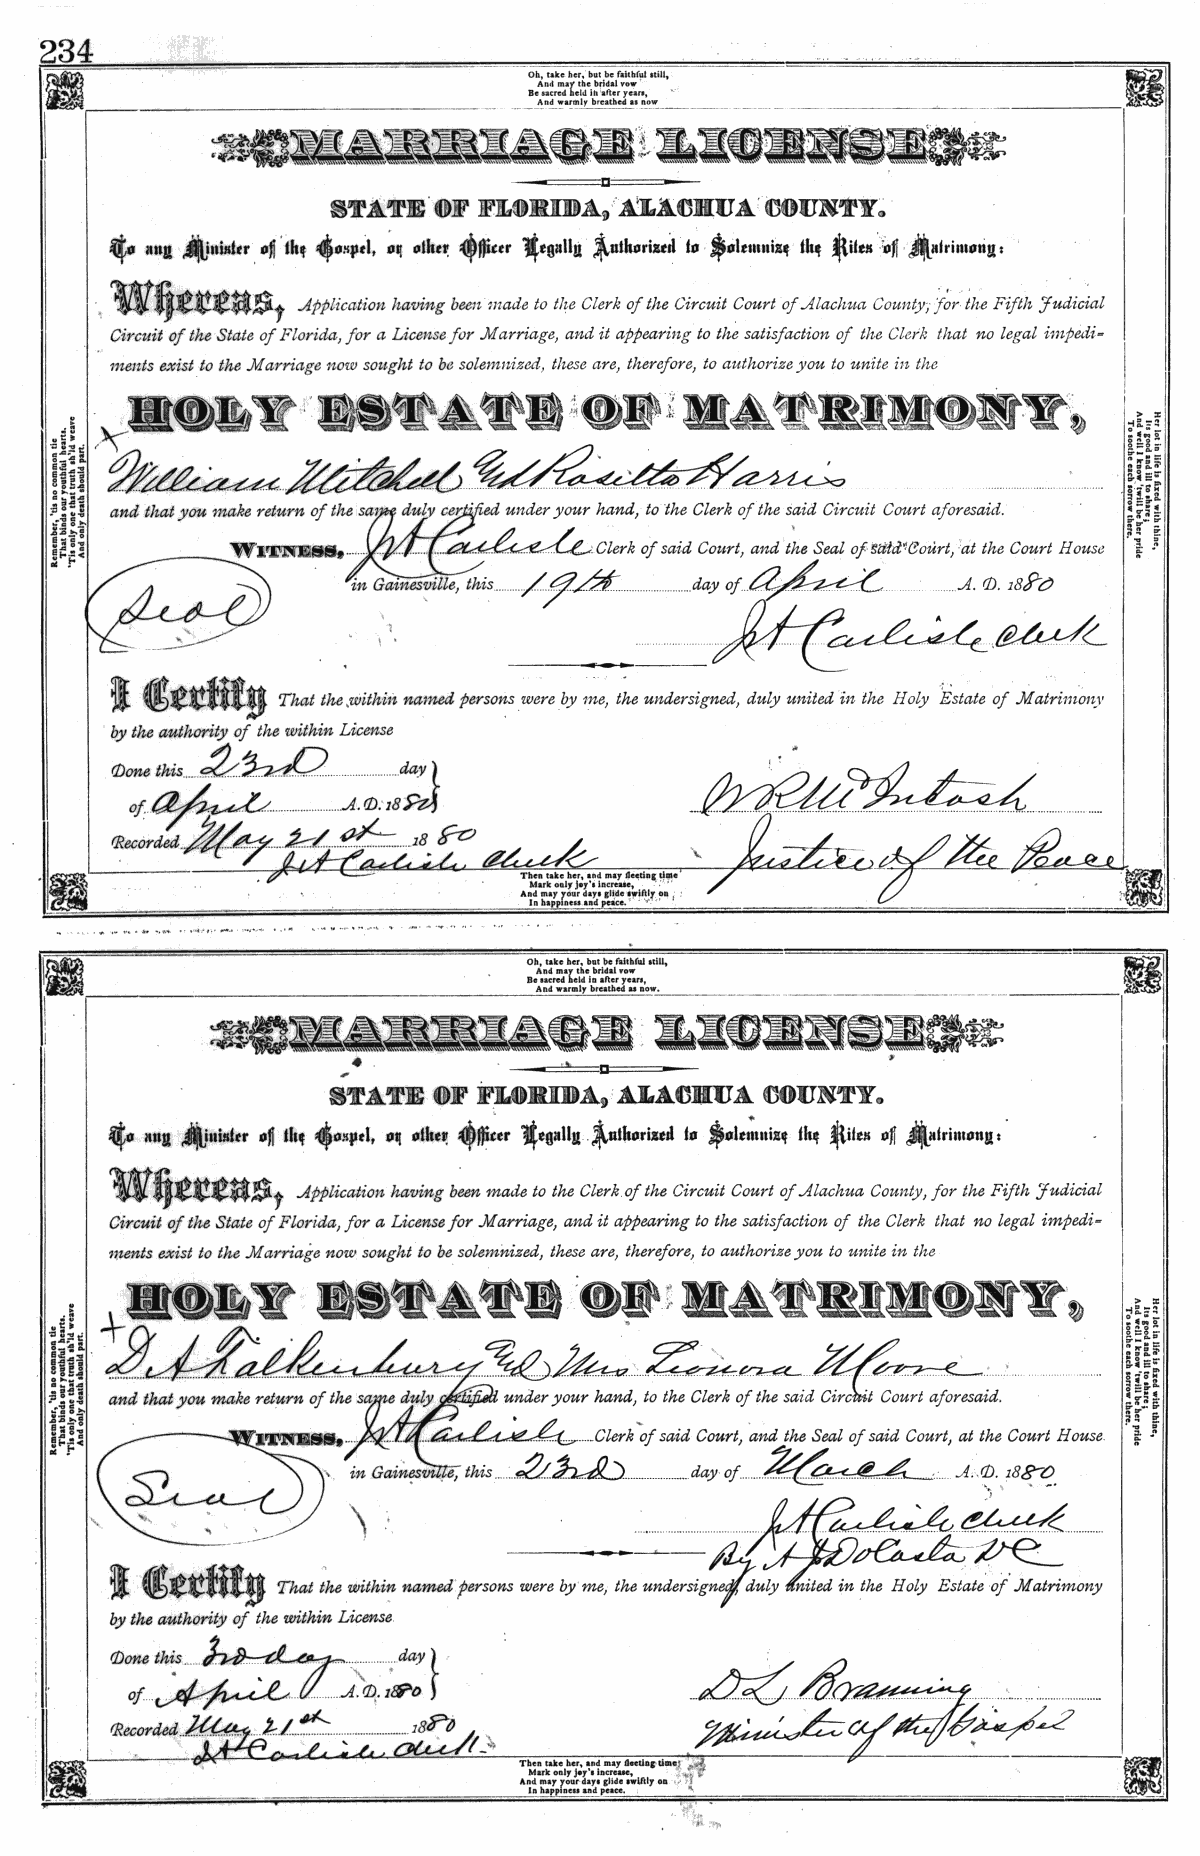 234
Oh, take her, but be faithful still,
And may the bridal vow
Be sacred held in after years,
And warmly breathed as now
MARRIAGE LICENSE
STATE OF FLORIDA, ALACHUA COUNTY.
To any Minister of the Gospel, or other Officer Legally Authorized to Solemnize the Rites of Matrimony:
Whereas, Application having been made to the Clerk of the Circuit Court of Alachua County, for the Fifth Judicial
Circuit of the State of Florida, for a License for Marriage, and it appearing to the satisfaction of the Clerk that no legal impedi-
ments exist to the Marriage now sought to be solemnized, these are, therefore, to authorize you to unite in the
HOLY ESTATE OF MATRIMONY,
William Mitchell And Rosetta Harris
and that you make return of the same duly certified under your hand, to the Clerk of the said Circuit Court aforesaid.
WITNESS, J A Carlisle Clerk of said Court, and the Seal of said Court, at the Court House
in Gainesville, this 19th day of April A. D. 1880
Seal
J A Carlisle Clerk
I Certify That the within named persons were by me, the undersigned, duly united in the Holy Estate of Matrimony
by the authority of the within License
Done this 23rd day
of April A. D. 1880
W R McIntosh
Recorded May 21st 1880
J A Carlisle Clerk
Justice of the Peace
Then take her, and may fleeting time
Mark only joy's increase,
And may your days glide swiftly on
In happiness and peace.
Remember, 'tis no common tie
That binds our youthful hearts.
'Tis only one that truth sh'ld weave
And only death should part.
Her lot in life is fixed with thine,
Its good and ill to share;
And well I know 'twill be her pride
To soothe each sorrow there.
Oh, take her, but be faithful still,
And may the bridal vow
Be sacred held in after years,
And warmly breathed as now.
MARRIAGE LICENSE
STATE OF FLORIDA, ALACHUA COUNTY.
To any Minister of the Gospel, or other Officer Legally Authorized to Solemnize the Rites of Matrimony:
Whereas, Application having been made to the Clerk of the Circuit Court of Alachua County, for the Fifth Judicial
Circuit of the State of Florida, for a License for Marriage, and it appearing to the satisfaction of the Clerk that no legal impedi-
ments exist to the Marriage now sought to be solemnized, these are, therefore, to authorize you to unite in the
HOLY ESTATE OF MATRIMONY,
D A Falkenbury And Mrs Leonora Moore
and that you make return of the same duly certified under your hand, to the Clerk of the said Circuit Court aforesaid.
WITNESS, J A Carlisle Clerk of said Court, and the Seal of said Court, at the Court House
in Gainesville, this 23rd day of March A. D. 1880
Seal
J A Carlisle Clerk
By A J DaCosta DC
I Certify That the within named persons were by me, the undersigned, duly united in the Holy Estate of Matrimony
by the authority of the within License
Done this 3rd day day
of April A. D. 1880
D L Branning
Recorded May 21st 1880
Minister of the Gospel
J A Carlisle Clerk
Then take her, and may fleeting time
Mark only joy's increase,
And may your days glide swiftly on
In happiness and peace.
Remember, 'tis no common tie
That binds our youthful hearts.
'Tis only one that truth sh'ld weave
And only death should part.
Her lot in life is fixed with thine,
Its good and ill to share;
And well I know 'twill be her pride
To soothe each sorrow there.